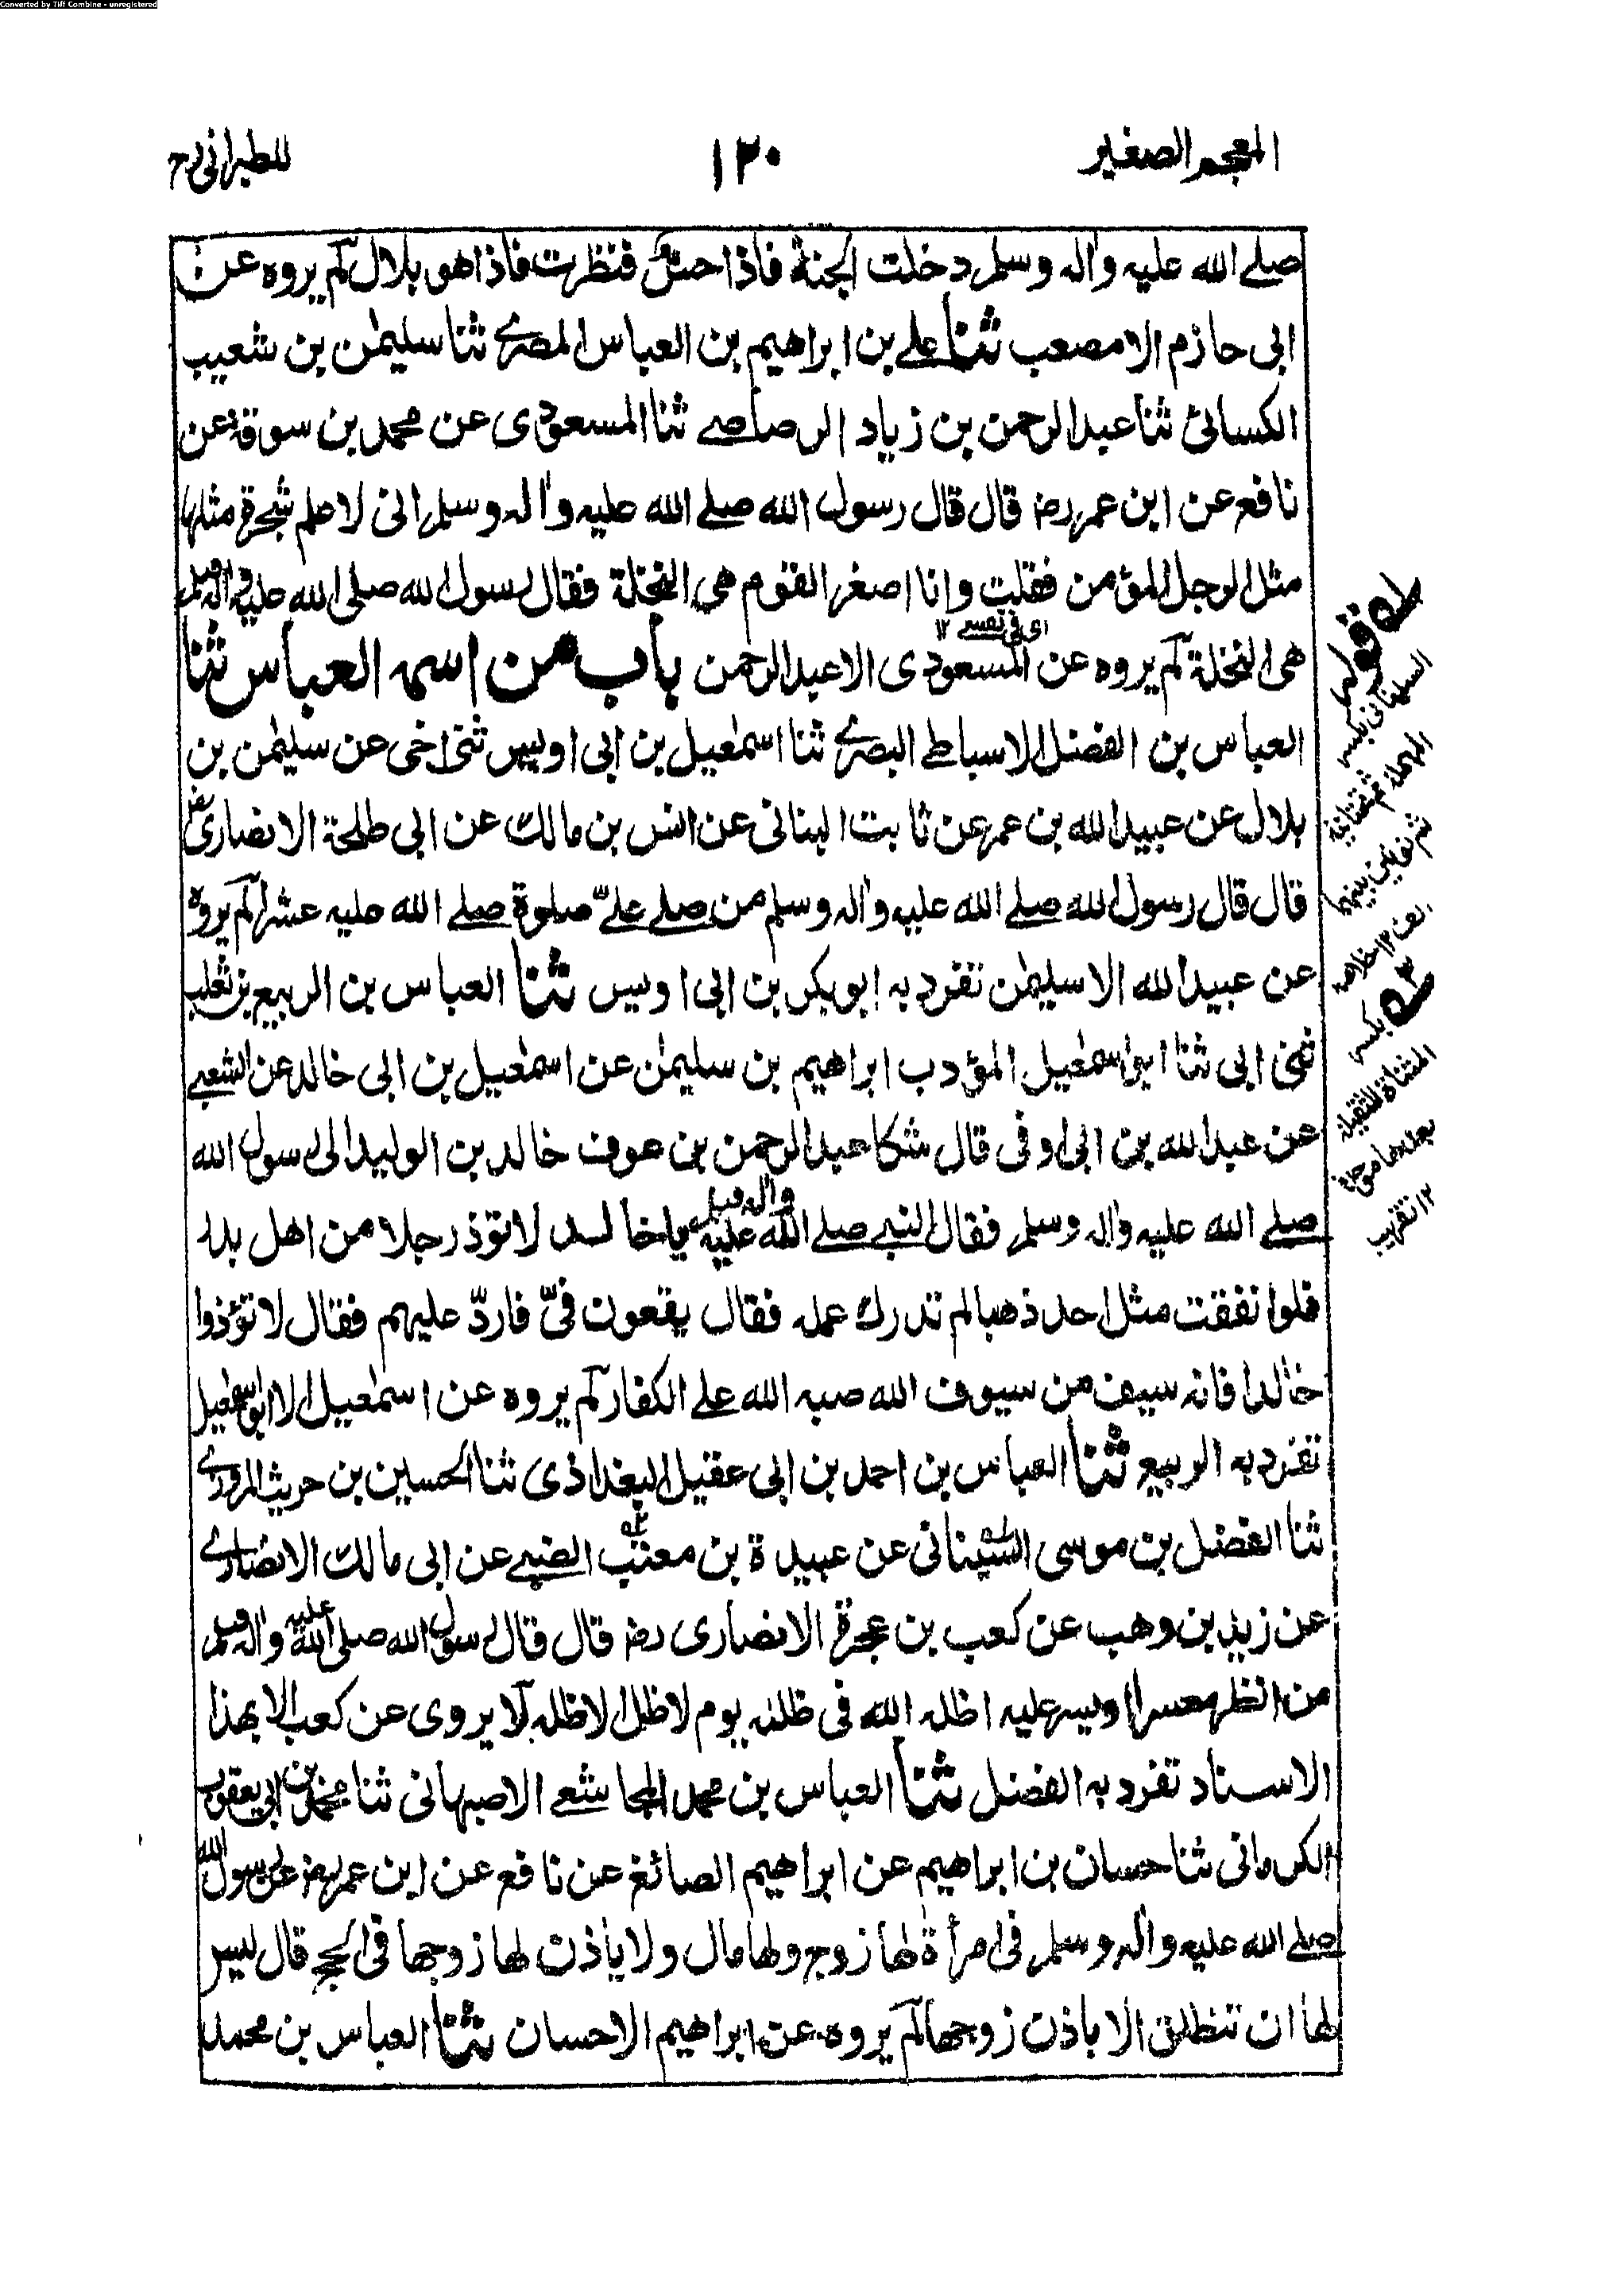 Converted by Tiff Combine - unregistered
المعجم الصغير
١٢٠
للطبرانى رح
صلے الله عليه واله وسلم دخلت الجنة فاذا حس فنظرت فاذا هو بلال لم يروه عن
ابى حازم الا مصعب ثنا علے بن ابراهيم بن العباس المصرے ثنا سليمٰن بن شعيب
الكسائى ثنا عبد الرحمن بن زياد الرصاصے ثنا المسعودى عن محمد بن سوقة عن
نافع عن ابن عمر رض قال قال رسول الله صلے الله عليه واله وسلم انى لاعلم شجرة مثلها
مثل الرجل المؤمن فقلت وانا اصغر القوم هى النخلة فقال رسول الله صلى الله عليه واله وسلم
اى فى نفسے ١٢
هى النخلة لم يروه عن المسعودى الا عبد الرحمن باب من اسمه العباس ثنا
العباس بن الفضل الاسباطے البصرے ثنا اسمٰعيل بن ابى اويس ثنى اخى عن سليمٰن بن
بلال عن عبيد الله بن عمر عن ثابت البنانى عن انس بن مالك عن ابى طلحة الانصارى رض
قال قال رسول الله صلے الله عليه واله وسلم من صلے علىّ صلوة صلے الله عليه عشرا لم يروه
عن عبيد الله الا سليمٰن تفرد به ابو بكر بن ابى اويس ثنا العباس بن الربيع بن ثعلب
ثنى ابى ثنا ابو اسمٰعيل المؤدب ابراهيم بن سليمٰن عن اسمٰعيل بن ابى خالد عن الشعبے
عن عبد الله بن ابى اوفى قال شكا عبد الرحمن بن عوف خالد بن الوليد الى رسول الله
صلے الله عليه واله وسلم فقال النبے صلے الله عليه واله وسلم يا خالد لا تؤذ رجلا من اهل بدر
فلو انفقت مثل احد ذهبا لم تدرك عمله فقال يقعون فىّ فاردّ عليهم فقال لا تؤذوا
خالدا فانه سيف من سيوف الله صبه الله علے الكفار لم يروه عن اسمٰعيل الا ابو اسمٰعيل
تفرد به الربيع ثنا العباس بن احمد بن ابى عقيل البغداذى ثنا الحسين بن حريث المروزے
ثنا الفضل بن موسى السينانى عن عبيدة بن معتب الضبے عن ابى مالك الانصارے
عن زيد بن وهب عن كعب بن عجرة الانصارى رض قال قال رسول الله صلى الله عليه واله وسلم
من انظر معسرا او يسر عليه اظله الله فى ظله يوم لا ظل الا ظله لا يروى عن كعب الا بهذا
الاسناد تفرد به الفضل ثنا العباس بن محمد المجاشعے الاصبهانى ثنا محمد بن ابى يعقوب
الكرمانى ثنا حسان بن ابراهيم عن ابراهيم الصائغ عن نافع عن ابن عمر رض عن رسول الله
صلے الله عليه واله وسلم فى امرأة لها زوج ولها مال ولا ياذن لها زوجها فى الحج قال ليس
لها ان تنطلق الا باذن زوجها لم يروه عن ابراهيم الا حسان ثنا العباس بن محمد
قوله
السينانى بكسر
المهملة ثم تحتانية
ثم نونين بينهما
الف ١٢ خلاصه
بكسر
المثناة الثقيلة
بعدها موحدة
١٢ تقريب